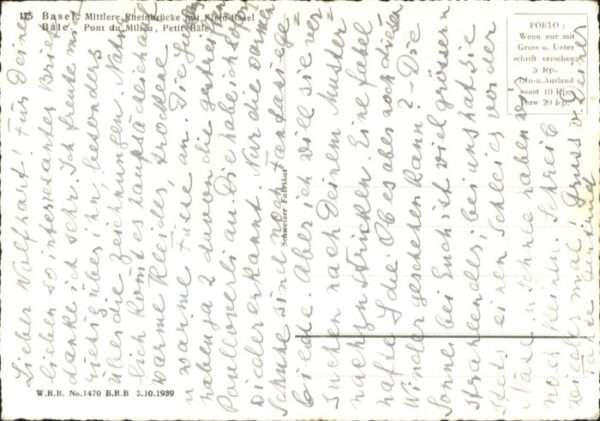 115 Basel. Mittlere Rheinbrücke mit Klein-Basel
Bâle. Pont du Milieu, Petit-Bâle
PORTO:
Wenn nur mit
Gruss u. Unter
schrift versehen
5 Rp.
sonst 10 Rp.
bzw 20 Rp.
Schweizer Fabrikat
W.R.B. No. 1470 B.R.B 3.10.1939
Lieber Wolfhart! Für Deinen
lieben so interessanten Brief
danke ich sehr. Ich freute mich
riesig über ihn, besonders
über die Zeichnungen.
lich kommt es hauptsächlich
warme Kleider, trockene
u. warme Füsse an. Die
haben ja 2 davon die gestreiften
Poulloverli an. Die habe ich
wieder erkannt. Nur die
Schuhe sind noch
Aber ich will sie ver-
suchen nach Deinem Muster
nachzustricken. Eine fabel-
hafte Idee. Ob es aber noch diesen
Winter geschehen kann? - Die
Sonne bei Euch ist viel grösser u.
strahlender, bei uns hat sie
stets einen Schleier vor der
Nase. Schnee haben wir
noch keinen. Schreib
wieder mal! Gruss v. Deiner